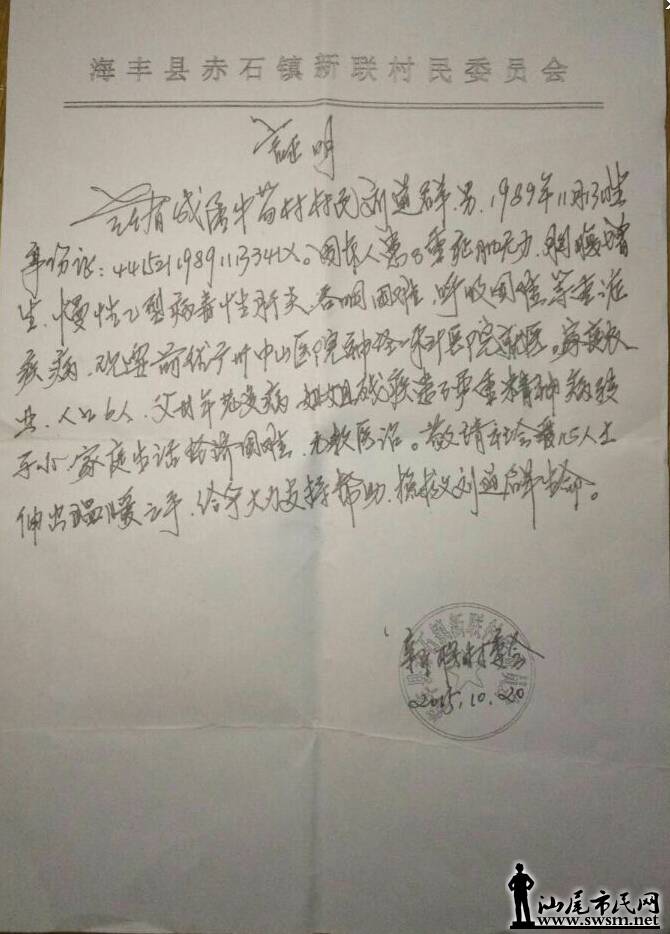 海丰县赤石镇新联村民委员会
证明
兹有我属中苗村村民刘道群、男、1989年11月13日生
身份证:44152119891113341X。因本人患了重症肌无力、胸腺增
生、慢性乙型病毒性肝炎、吞咽困难、呼吸困难等重症
疾病、现要前往广州中山医院神经科医院就医。家庭农
业、人口6人、父母年老多病、姐姐残疾患严重精神病、孩
子小、家庭生活经济困难、无款医治。敬请社会爱心人士
伸出温暖之手、给予大力支持帮助、拯救刘道群生命。
新联村委会
2015.10.20
汕尾市民网
www.swsm.net